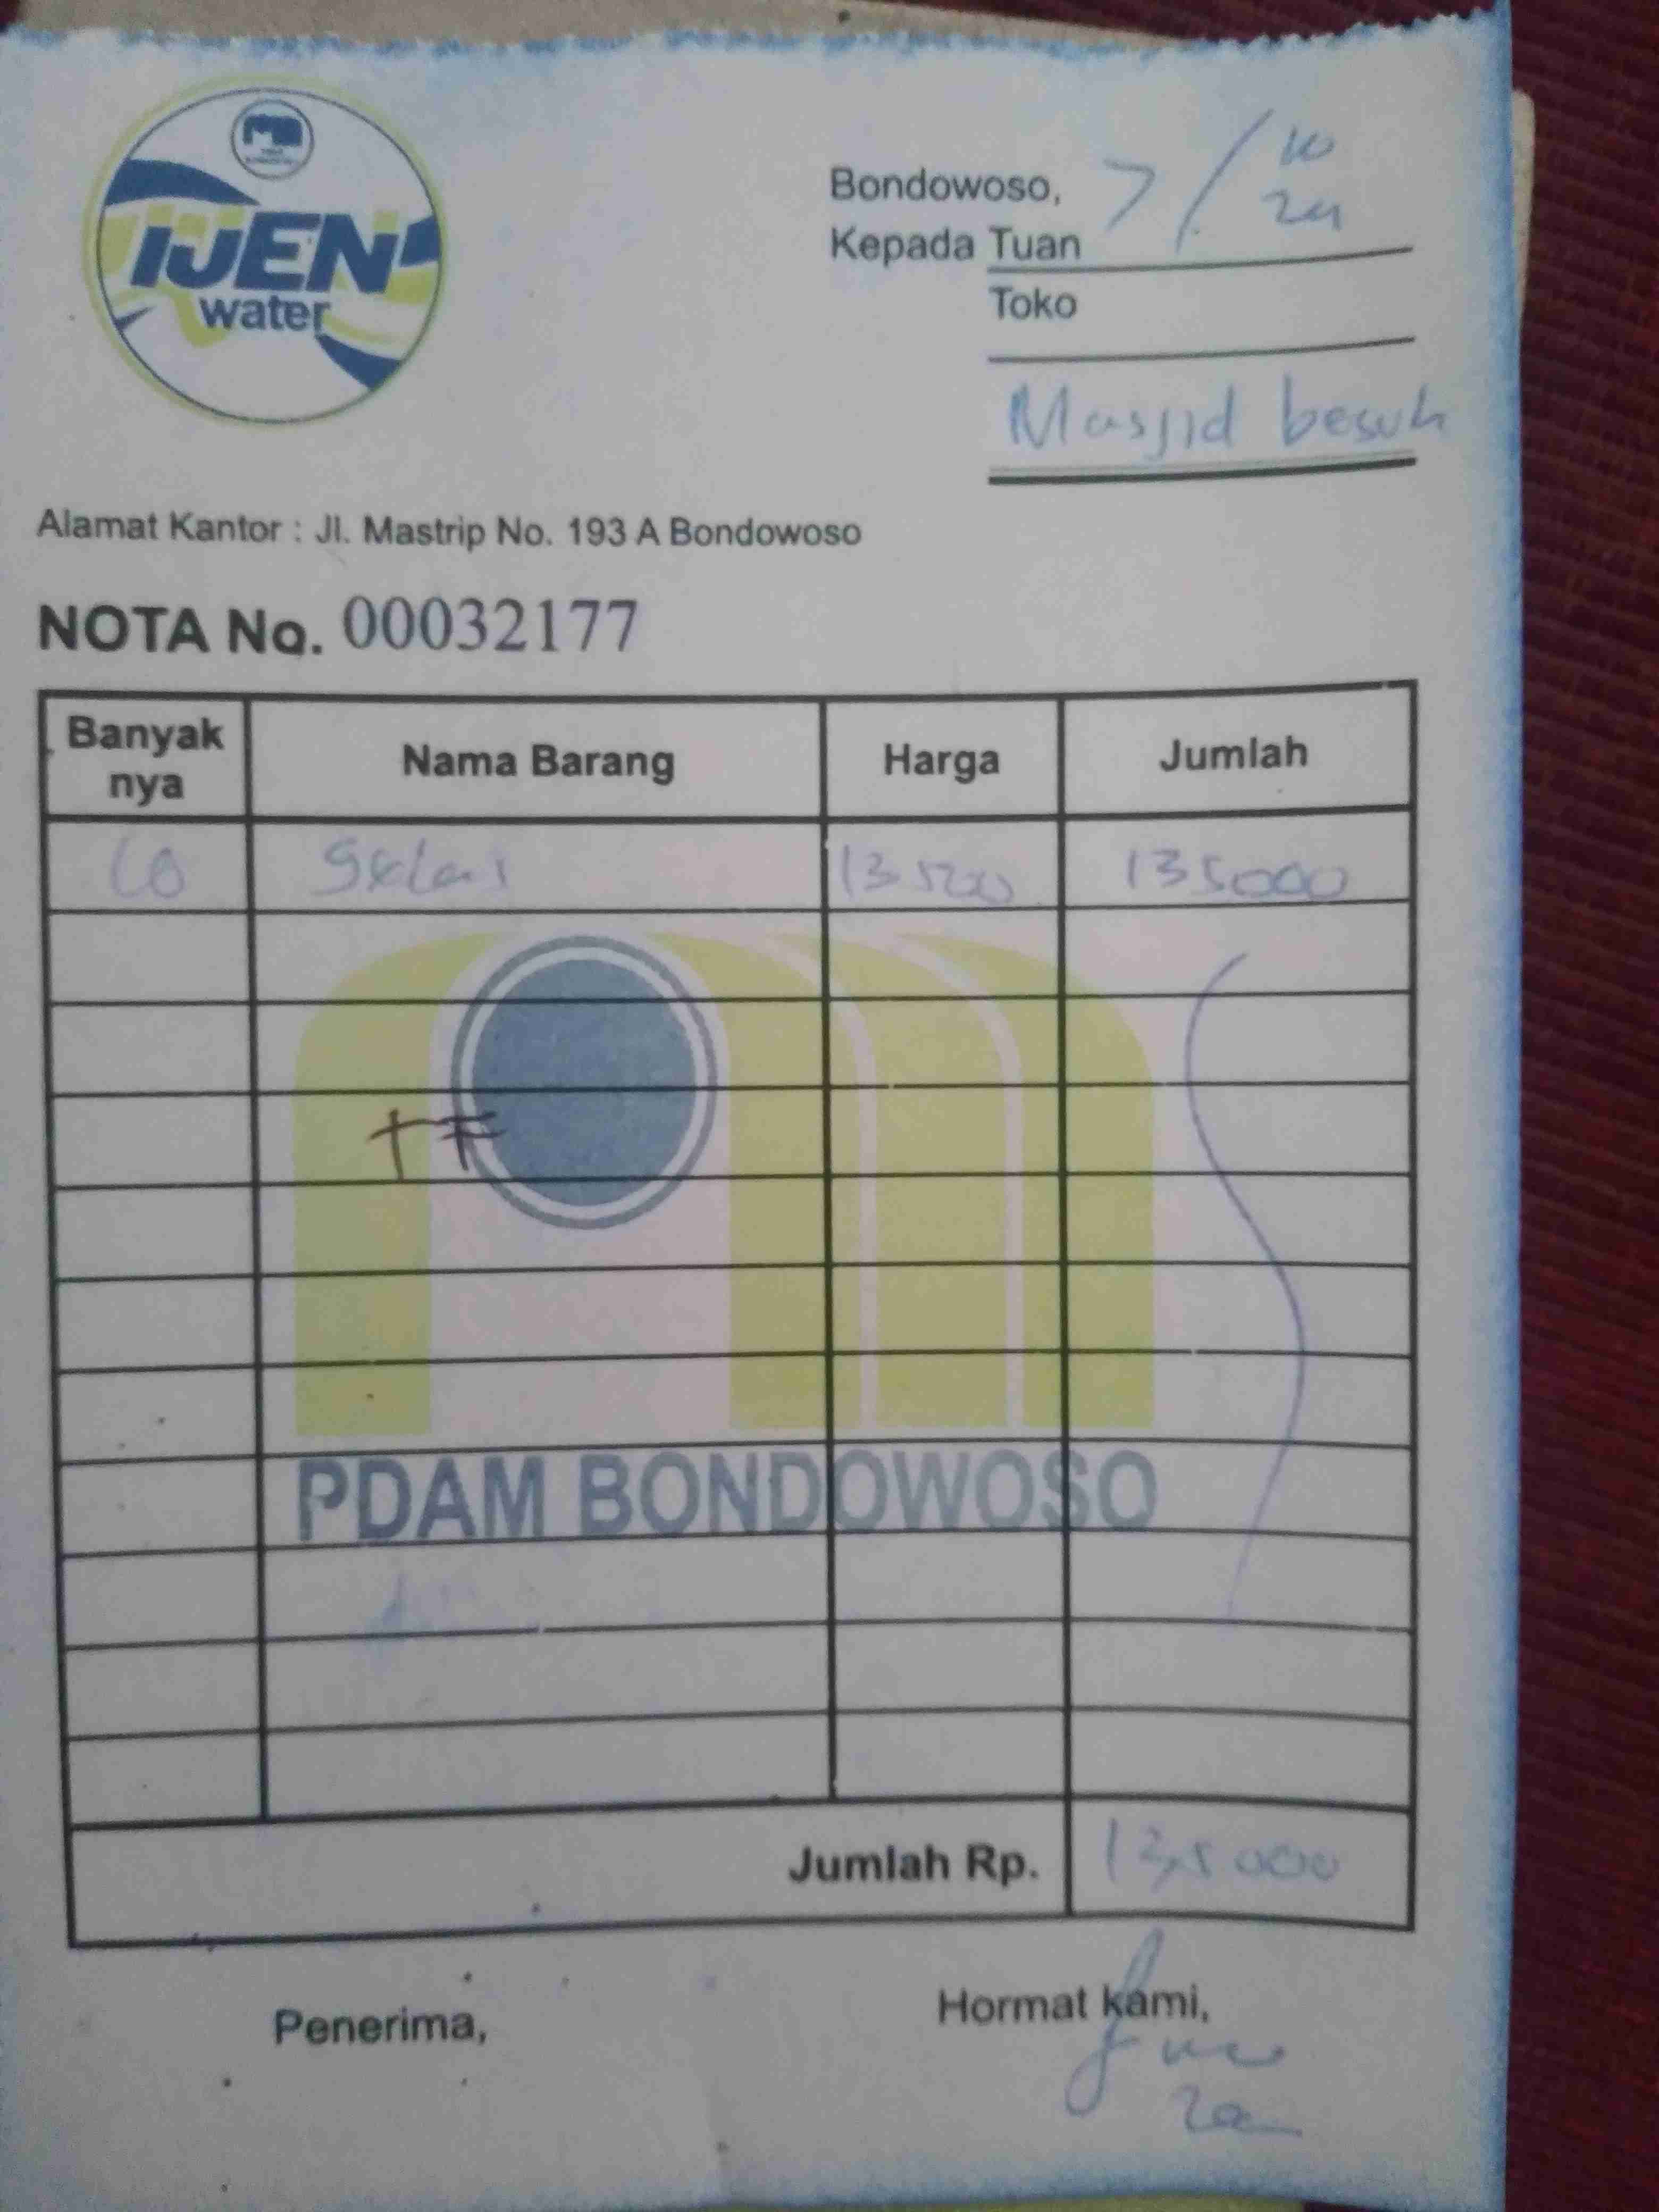 IJEN
water
Bondowoso, 7/10 24
Kepada Tuan
Toko
Masjid besuk
Alamat Kantor : Jl. Mastrip No. 193 A Bondowoso
NOTA No. 00032177
Banyak nya Nama Barang Harga Jumlah
10 Gelas 13500 135000
TF
PDAM BONDOWOSO
Jumlah Rp. 135000
Penerima, Hormat kami,